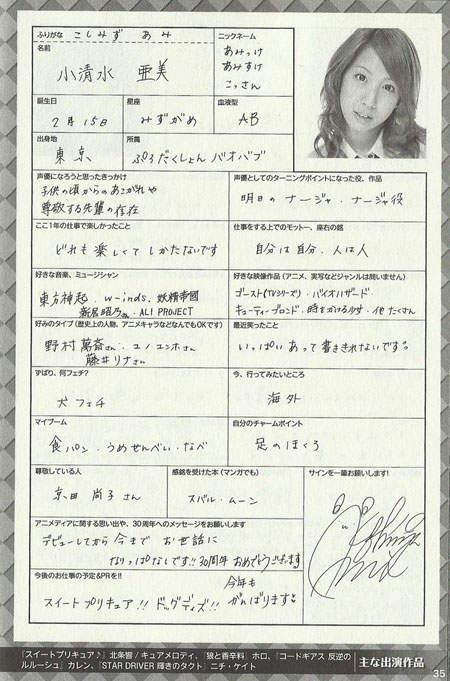 ふりがな こしみず あみ
名前
小清水 亜美
ニックネーム
あみっけ
あみすけ
こっさん
誕生日
2月15日
星座
みずがめ
血液型
AB
出身地
東京
所属
ぷろだくしょん バオバブ
声優になろうと思ったきっかけ
子供の頃からのあこがれや
尊敬する先輩の存在
声優としてのターニングポイントになった役、作品
明日のナージャ・ナージャ役
ここ1年の仕事で楽しかったこと
どれも楽しくてしかたないです
仕事をする上でのモットー、座右の銘
自分は自分、人は人
好きな音楽、ミュージシャン
東方神起、w-inds、妖精帝國
新居昭乃さん、ALI PROJECT
好きな映像作品（アニメ、実写などジャンルは問いません）
ゴースト(TVシリーズ)・バイオハザード
キューティーブロンド、時をかける少女・他たくさん
好みのタイプ（歴史上の人物、アニメキャラなどなんでもOKです）
野村萬斎さん・ユノユンホさん
藤井リナさん
最近笑ったこと
いっぱいあって書ききれないです。
ずばり、何フェチ？
犬フェチ
今、行ってみたいところ
海外
マイブーム
食パン・うめせんべい・なべ
自分のチャームポイント
足のほくろ
尊敬している人
京田尚子さん
感銘を受けた本（マンガでも）
スバル・ムーン
サインを一筆お願いします！
アニメディアに関する思い出や、30周年へのメッセージをお願いします
デビューしてから今までお世話に
なりっぱなしです!!30周年おめでとうございます
今後のお仕事の予定&PRを!!
スイートプリキュア!!ドッグデイズ!!今年もがんばります
『スイートプリキュア♪』北条響／キュアメロディ、『狼と香辛料』ホロ、『コードギアス 反逆の
ルルーシュ』カレン、『STAR DRIVER 輝きのタクト』ニチ・ケイト
主な出演作品
35